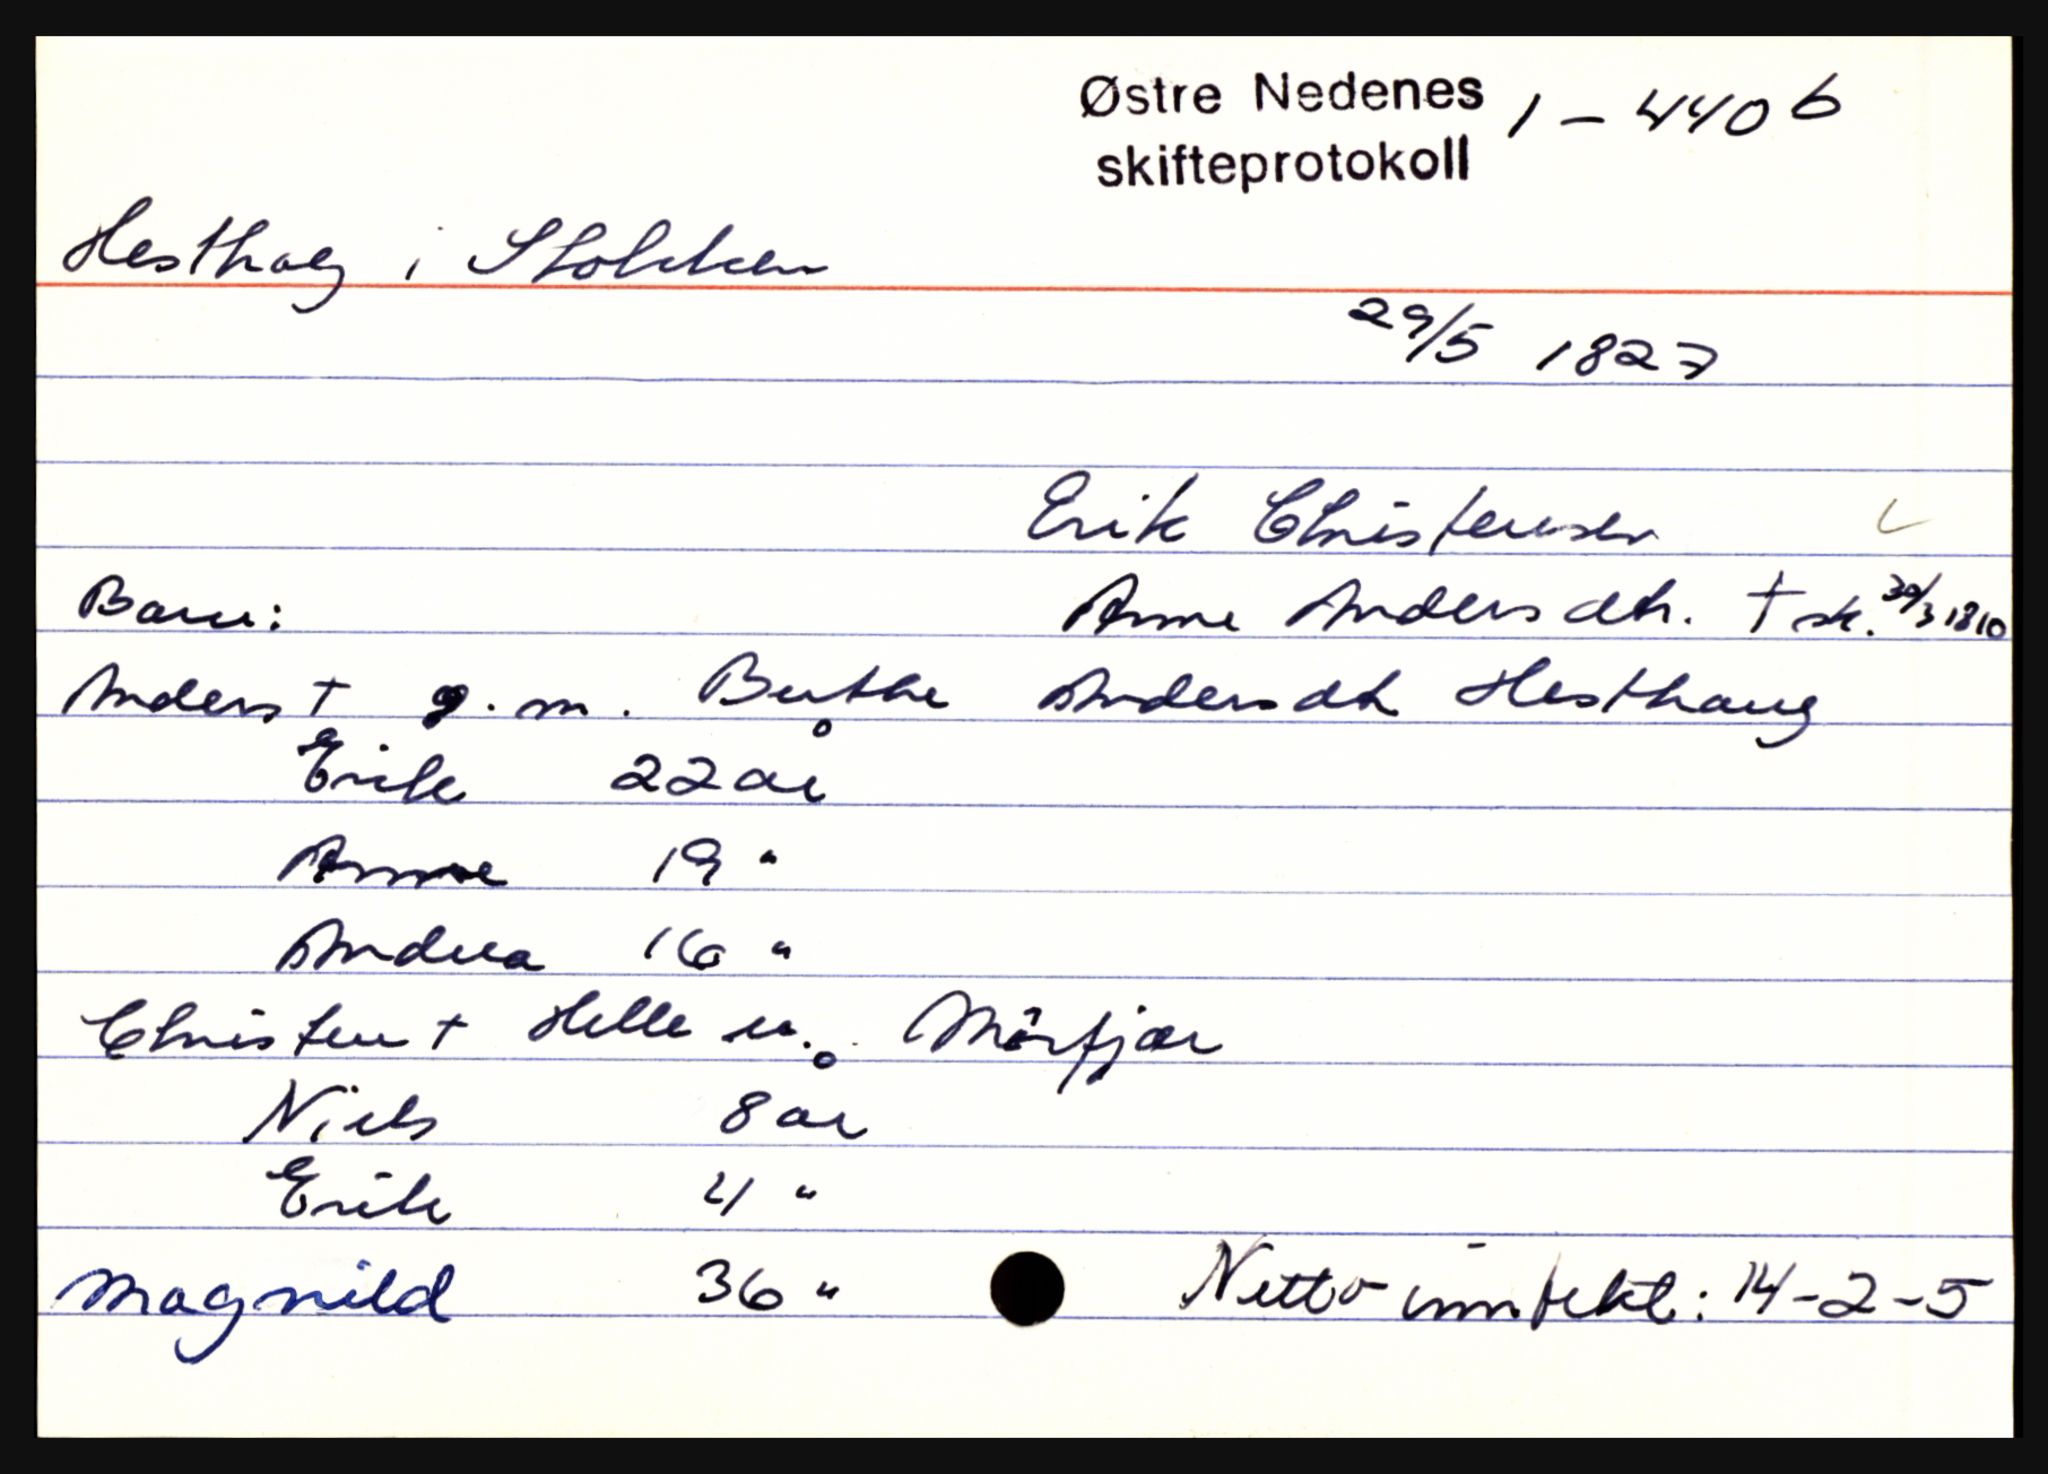 Østre Nedenes 1 - 440 b
skifteprotokoll
Hesthag i Stokken
29/5 1827
Erik Christensen
Barn: Anne Andersdtr. † sk. 30/3 1810
Anders † g. m. Berthe Andersdtr Hesthaug
Erik 22 år
Anne 19 "
Andrea 16 "
Christen † Helle n. Mörfjær
Niels 8 år
Erik 4 "
Magnild 36 "
Netto inntekt: 14-2-5